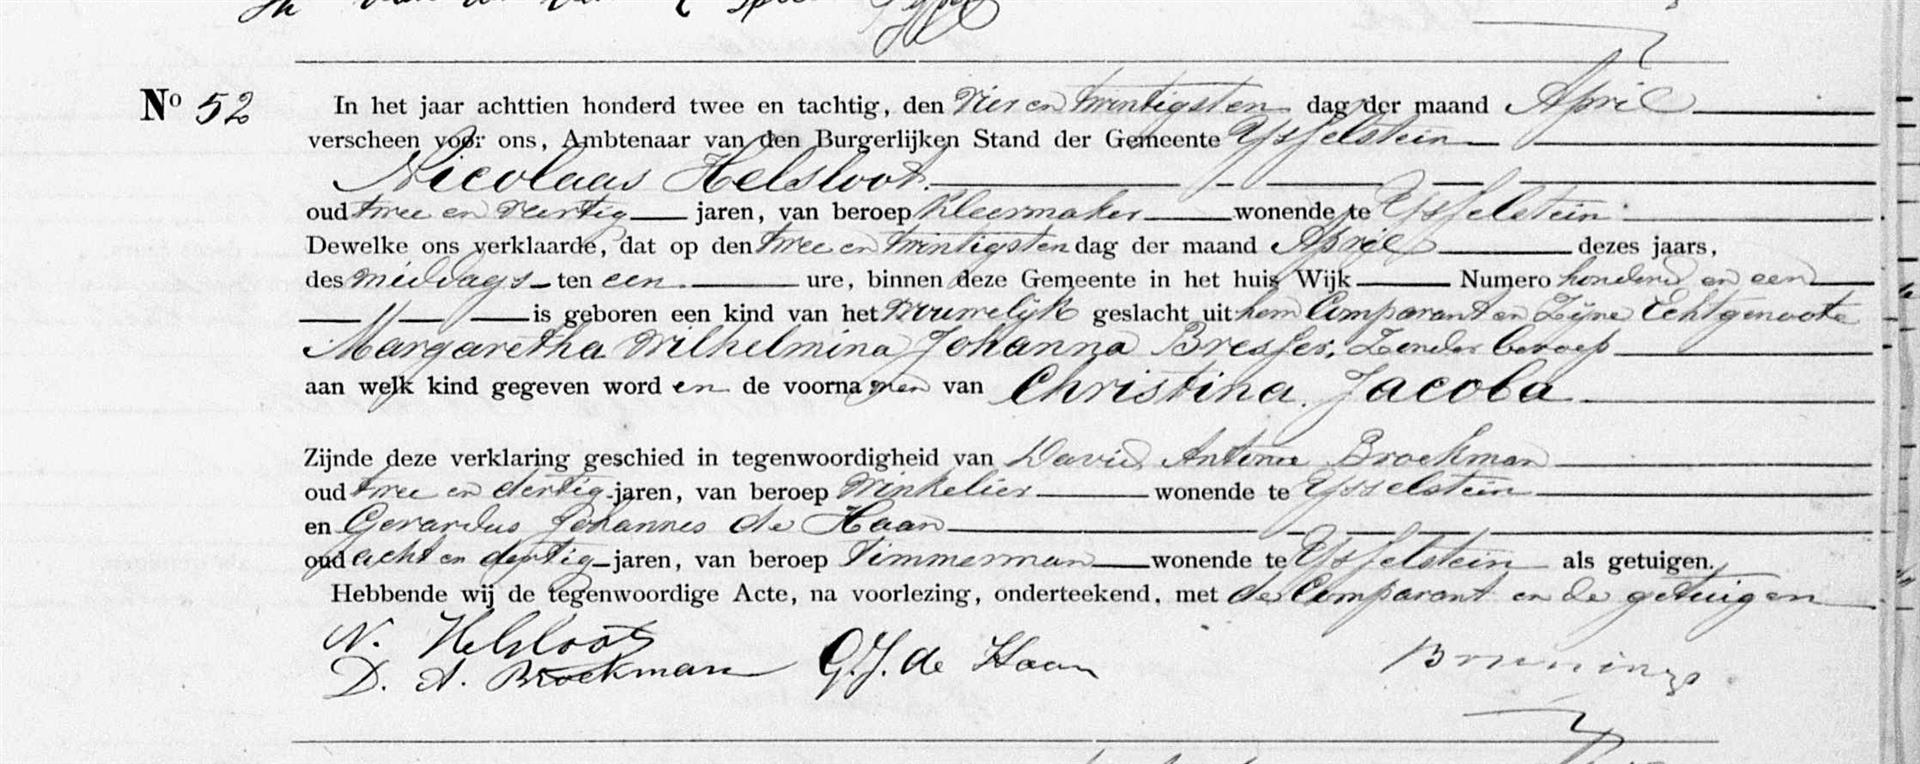 No 52 In het jaar achttien honderd twee en tachtig, den vier en twintigsten dag der maand April
verscheen voor ons, Ambtenaar van den Burgerlijken Stand der Gemeente IJsselstein
Nicolaas Helsloot
oud twee en veertig jaren, van beroep Kleermaker wonende te IJsselstein
Dewelke ons verklaarde, dat op den twee en twintigsten dag der maand April dezes jaars,
des middags ten een ure, binnen deze Gemeente in het huis Wijk Numero honderd en een
is geboren een kind van het vrouwelijk geslacht uit hem Comparant en Zijne Echtgenoote
Margaretha Wilhelmina Johanna Bresser, Zonder beroep
aan welk kind gegeven word en de voornamen van Christina Jacoba
Zijnde deze verklaring geschied in tegenwoordigheid van David Antonie Broekman
oud twee en dertig jaren, van beroep Winkelier wonende te IJsselstein
en Gerardus Johannes de Haan
oud acht en dertig jaren, van beroep Timmerman wonende te IJsselstein als getuigen.
Hebbende wij de tegenwoordige Acte, na voorlezing, onderteekend, met de Comparant en de getuigen
N. Helsloot
D. A. Broekman G. J. de Haan